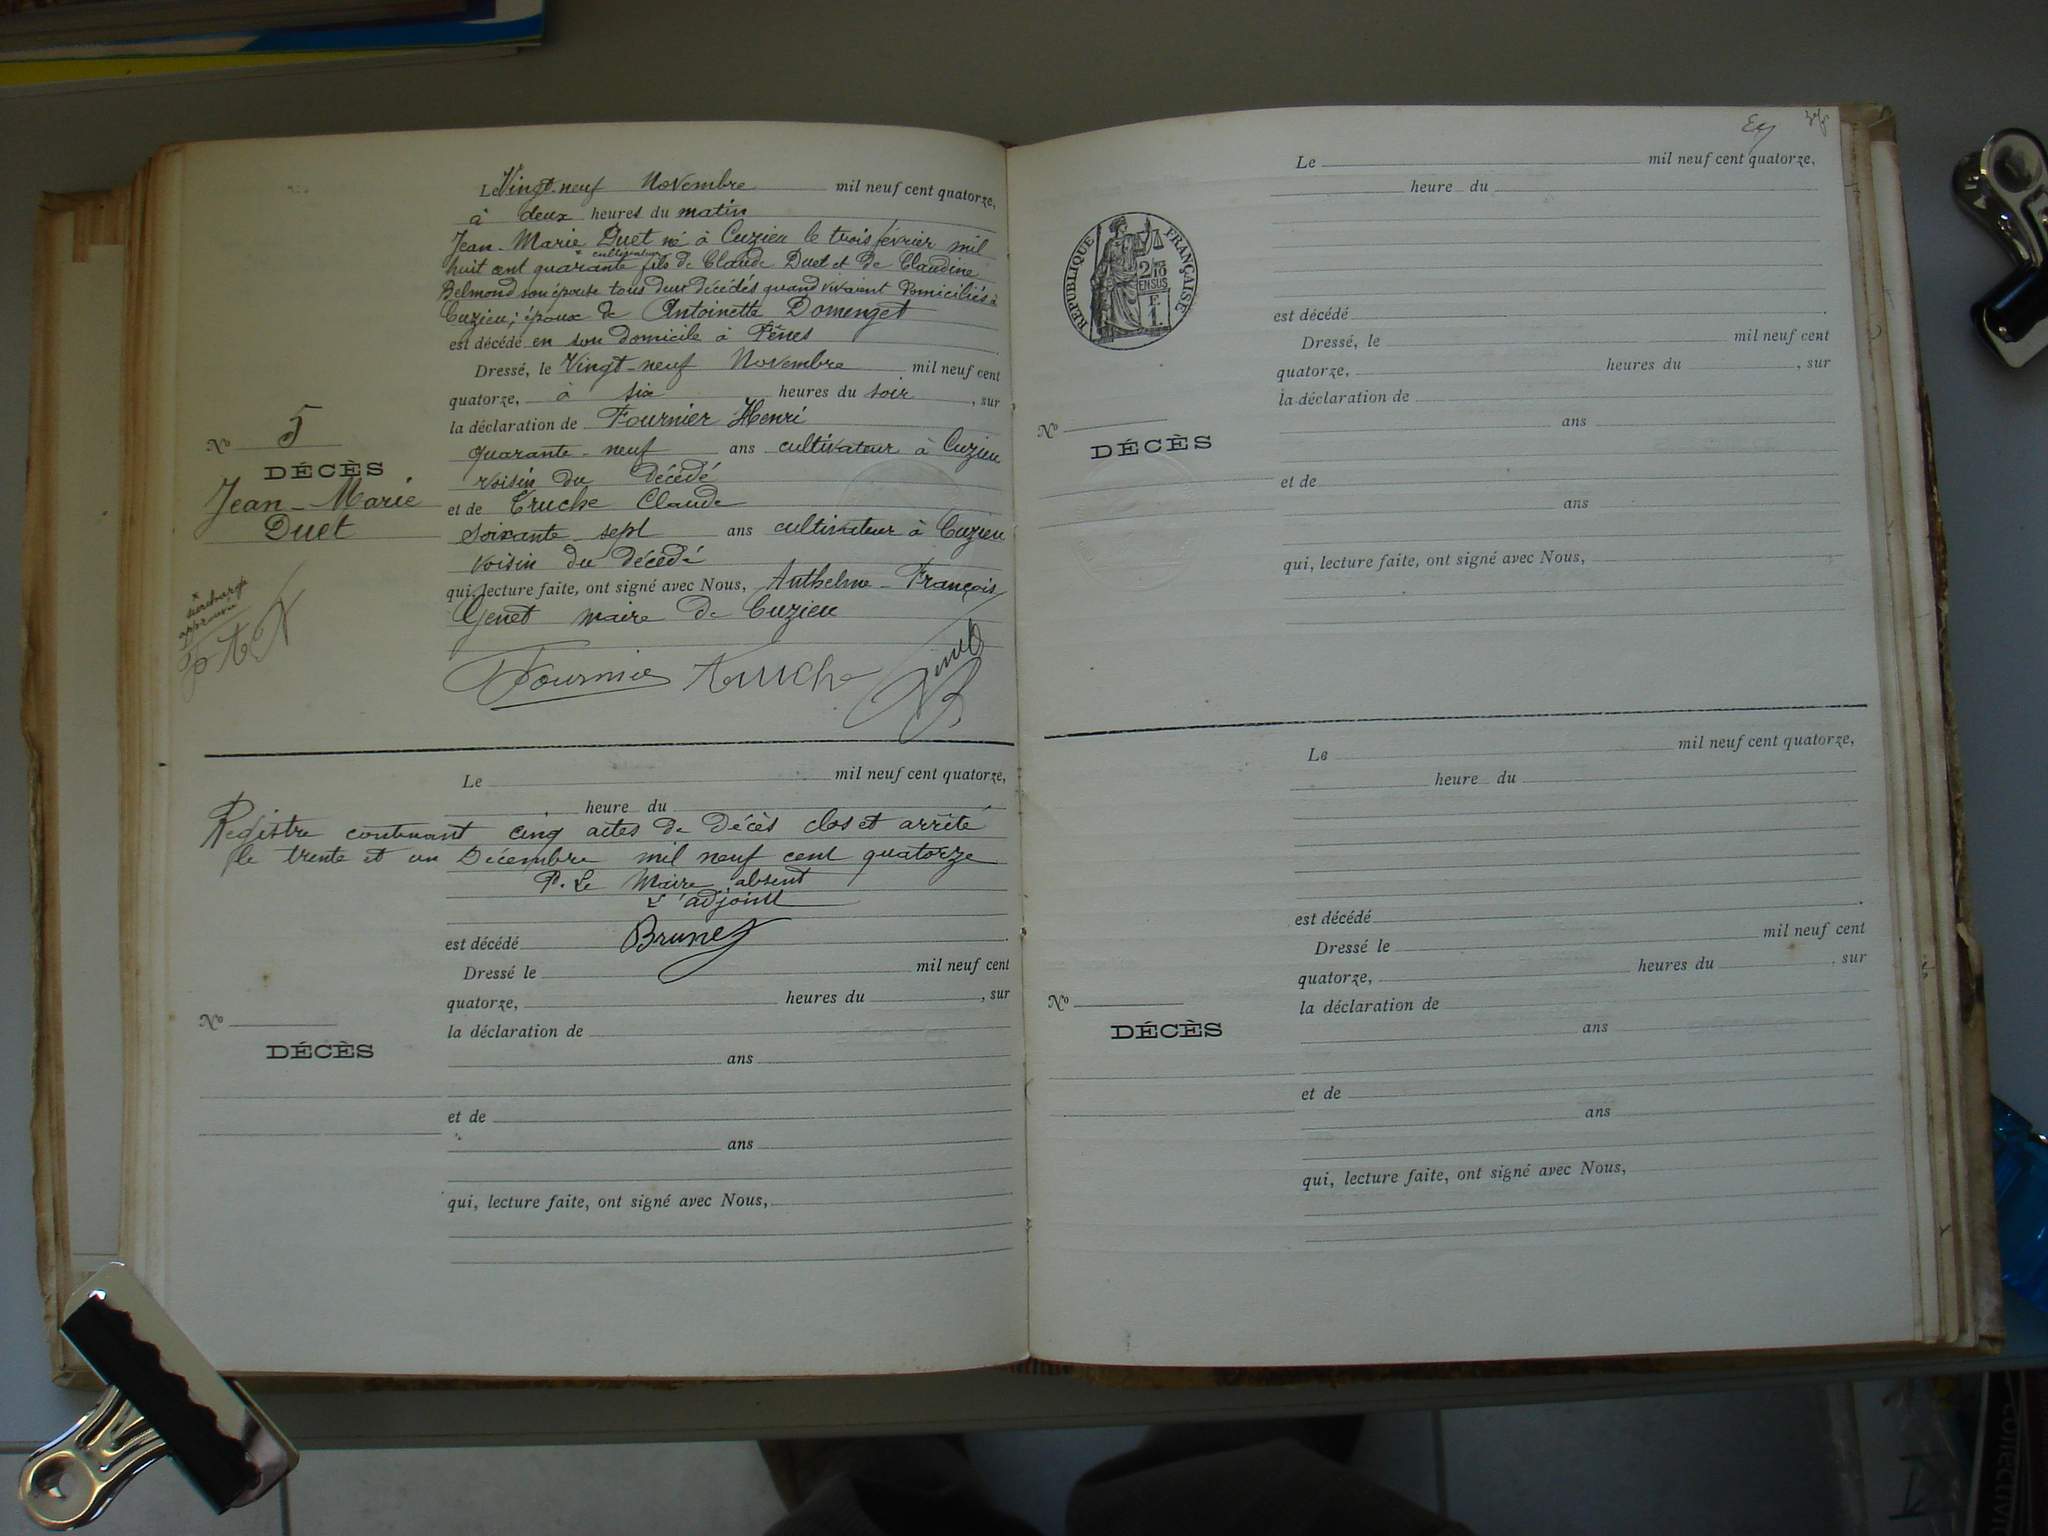 Le Vingt-neuf Novembre mil neuf cent quatorze,
à deux heures du matin
Jean-Marie Duet né à Cuzieu le trois février mil
x cultivateur
huit cent quarante fils de Claude Duet et de Claudine
Belmond son épouse tous deux décédés quand vivaient domiciliés à
Cuzieu; époux de Antoinette Domenget
est décédé en son domicile à
Dressé, le Vingt-neuf Novembre mil neuf cent
quatorze, à six heures du soir, sur
la déclaration de Fournier Henri
quarante-neuf ans cultivateur à Cuzieu
voisin du décédé
et de Truche Claude
soixante-sept ans cultivateur à Cuzieu
voisin du décédé
qui, lecture faite, ont signé avec Nous, Anthelme-François
Genet maire de Cuzieu
Fournier Truche Genet
No 5
DÉCÈS
Jean-Marie
Duet
x
surcharge
approuvée
Le mil neuf cent quatorze,
heure du
Registre contenant cinq actes de décès clos et arrêté
le trente et un Décembre mil neuf cent quatorze
P. Le Maire absent
L'adjoint
est décédé Brunet
Dressé le mil neuf cent
quatorze, heures du , sur
No
la déclaration de
DÉCÈS
ans
et de
ans
qui, lecture faite, ont signé avec Nous,
Le mil neuf cent quatorze,
heure du
RÉPUBLIQUE FRANÇAISE
2/10
EN SUS
F.
1.
est décédé
Dressé, le mil neuf cent
quatorze, heures du , sur
la déclaration de
No
ans
DÉCÈS
et de
ans
qui, lecture faite, ont signé avec Nous,
Le mil neuf cent quatorze,
heure du
est décédé
Dressé le mil neuf cent
quatorze, heures du , sur
No
la déclaration de
DÉCÈS
ans
et de
ans
qui, lecture faite, ont signé avec Nous,